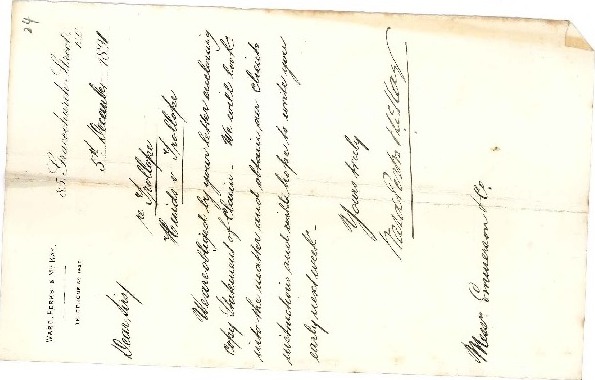 24
WARD, PERKS & McKAY.
TELEPHONE NO.
85, Gracechurch Street,
E.C.
5th December 1891
Dear Sirs
re Trollope
Hinds v Trollope
We are obliged by your letter enclosing
copy Statement of Claim - We will look
into the matter and obtain our clients
instructions and with hope to write you
early next week -
Yours truly
Ward Perks & McKay
Messrs Emmerson & Co